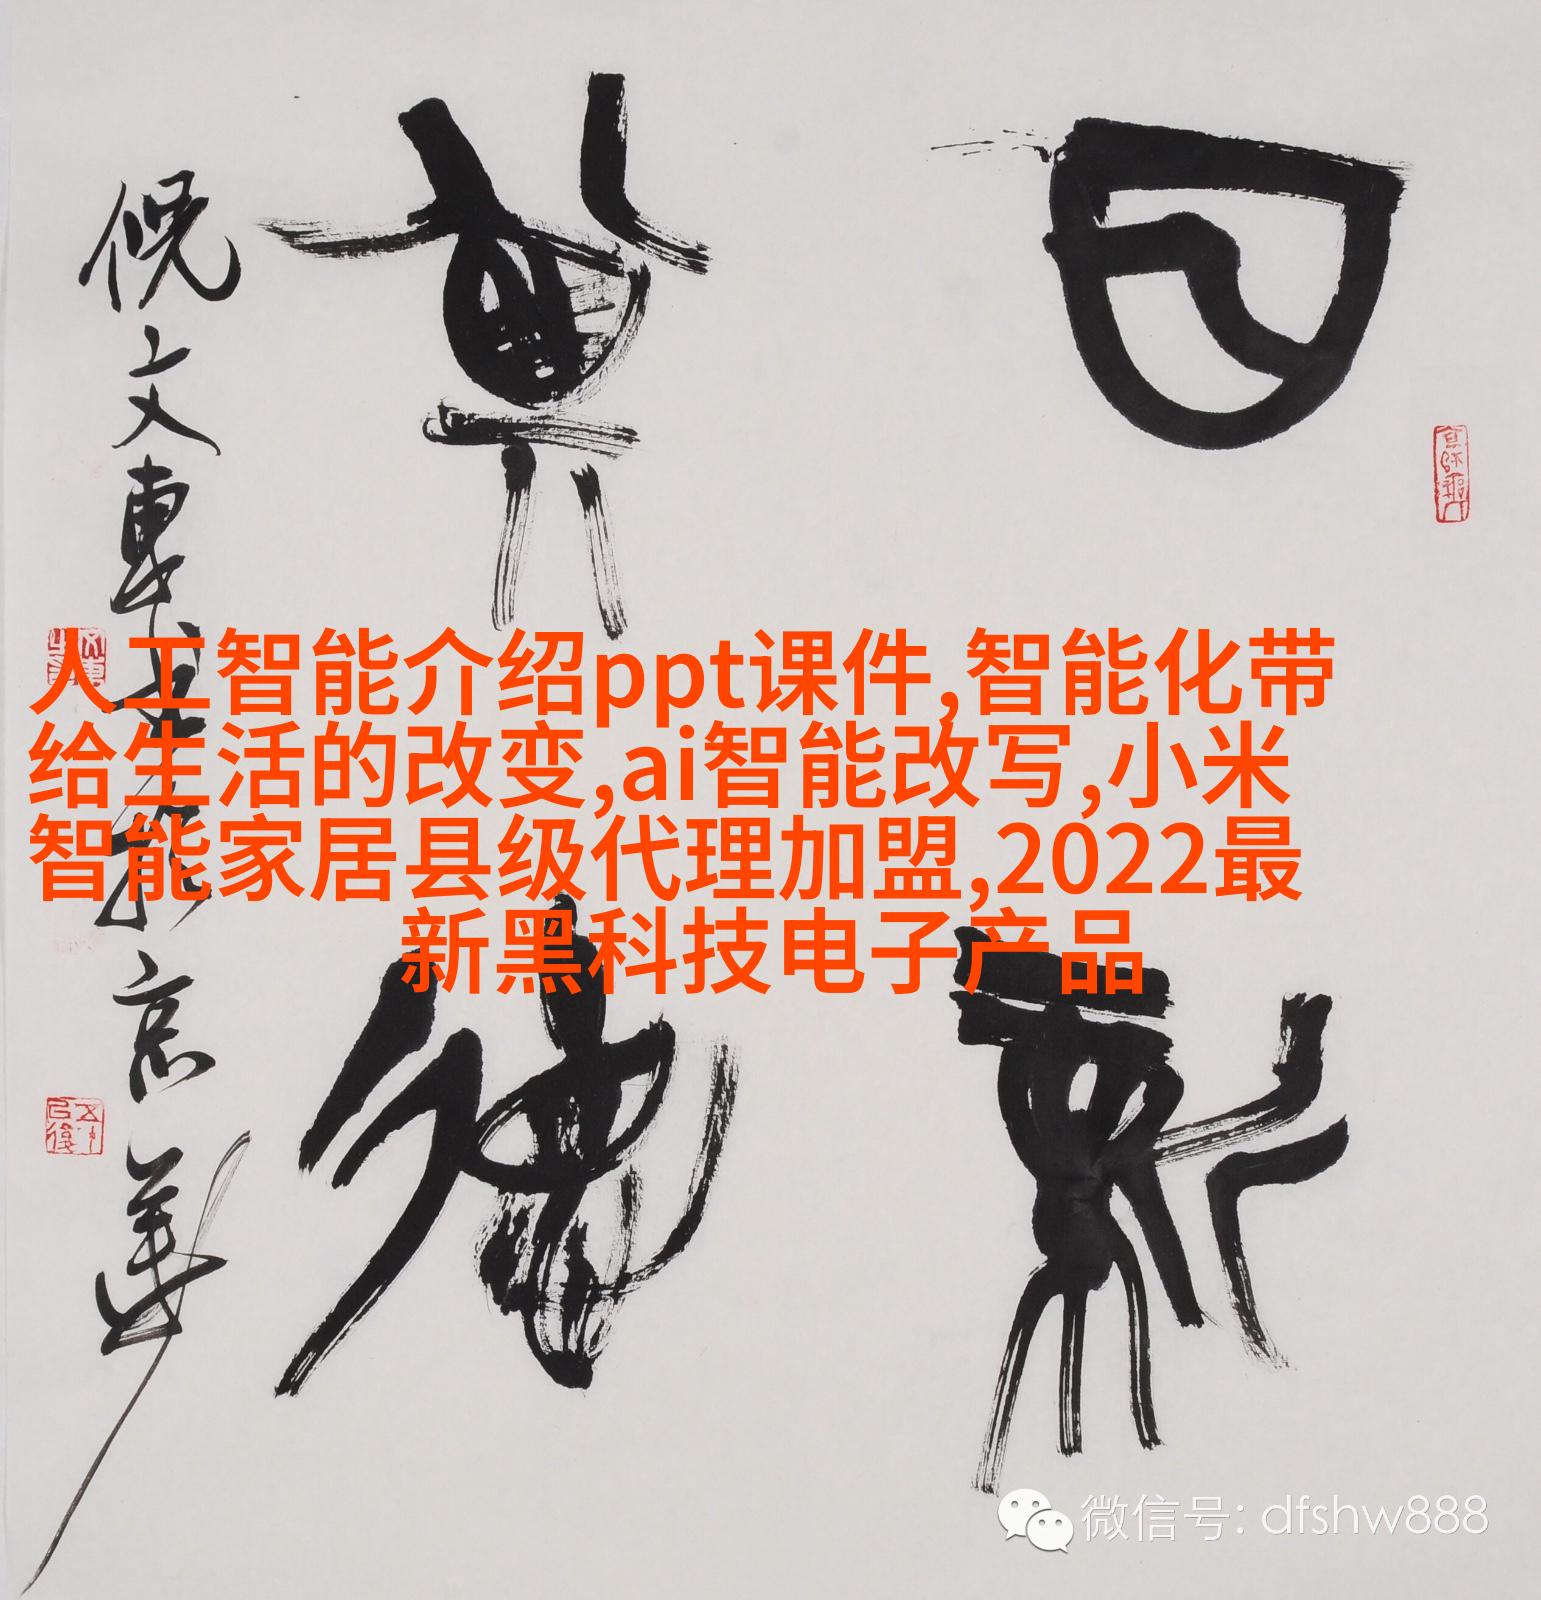 日新
其德
倪文東書於京華
人工智能介绍ppt课件,智能化带
给生活的改变,ai智能改写,小米
智能家居县级代理加盟,2022最
新黑科技电子产品
微信号: dfshw888